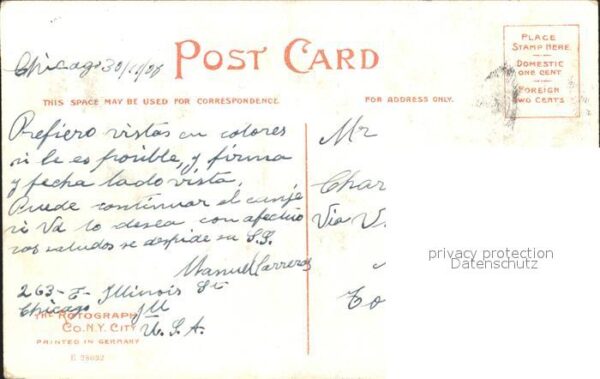 Chicago 30/11/08
POST CARD
PLACE
STAMP HERE
DOMESTIC
ONE CENT
FOREIGN
TWO CENTS
THIS SPACE MAY BE USED FOR CORRESPONDENCE.
FOR ADDRESS ONLY.
Prefiero vistas en colores
si le es posible, y firma
y fecha lado vista.
Puede continuar el canje
si Vd lo desea con afectuo
sos saludos se despide su S.S.
Manuel Carreras
263-E- Illinois St
Chicago Ill
U.S.A.
THE ROTOGRAPH
CO. N.Y. CITY
PRINTED IN GERMANY
Mr
Char
Via
privacy protection
Datenschutz